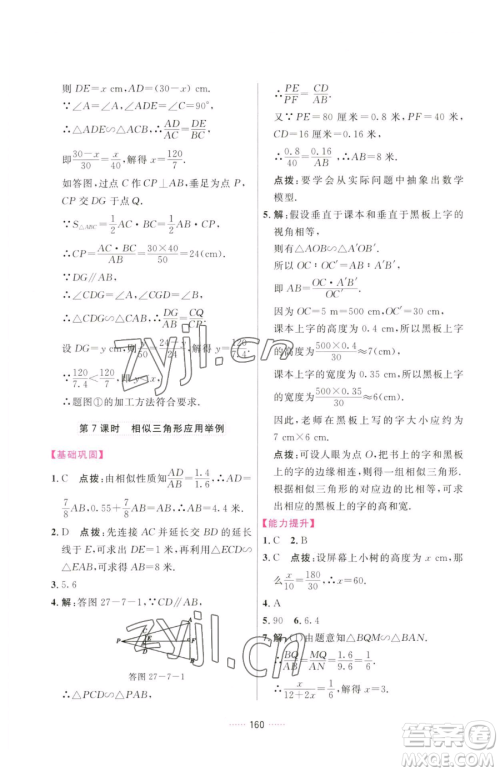 则 DE=x cm,AD=(30-x) cm.
∵∠A=∠A,∠ADE=∠C=90°,
∴△ADE∽△ACB. ∴AD/AC=DE/BC,
即(30-x)/30=x/40,解得 x=120/7.
如答图,过点 C 作 CP⊥AB,垂足为点 P,
与 DG 交于点 Q.
∵S△ABC=1/2 AC·BC=1/2 AB·CP,
∴CP=AC·BC/AB=30×40/50=24(cm).
∵DG∥AB,
∴∠CDG=∠A,∠CGD=∠B.
∴△CDG∽△CAB. ∴DG/AB=CQ/CP.
设 DG=y cm,则y/50=(24-y)/24,解得 y=
∵120/7.4<120/7,∴y<x.
∴题图①的加工方法符合要求.
第 7 课时 相似三角形应用举例
【基础巩固】
1. C 点拨:由相似性质知AD/AB=1.4/1.6,AD=
7/8 AB,0.55+7/8 AB=AB,∴AB=4.4 米.
2. D 点拨:先连接 AC 并延长交 BD 的延长
线于点 E,得出 DE=1 米,再由△ECD∽
△EAB,可求出 AB 的长度.
3. 5.6
4. 解:答图 27-7-1,∵CD∥AB,
答图 27-7-1
∴△PCD∽△PAB,
∴PE/PF=CD/AB.
又∵PE=0.8 米,BD=40 米,PF=40 米,
CD=16 厘米=0.16 米,
∴0.8/40=0.16/AB,∴AB=8 米.
点拨:要学会从实际问题中抽象出数学
模型.
5. 解:假设垂直于课本和垂直于黑板上字的
视角相等,
则有△AOB∽△A′OB′.
所以 OC∶OC′=AB∶A′B′.
即 AB=OC·A′B′/OC′
因为 OC=5 m=500 cm,OC′=30 cm,
课本上字的高度为 0.4 cm,所以黑板上字
的高度为500×0.4/30≈7(cm),
课本上字的宽度为 0.35 cm,所以黑板上
字的宽度为500×0.35/30≈6(cm).
因此,老师在黑板上写的字大小应约为
7 cm×6 cm.
点拨:将人的眼睛与书上的字、黑板上的
字的边缘连线,则得出一组相似三角形,
根据相似三角形的对应边的比与对应高
的比相等可求得字的高和宽.
【能力提升】
1. C 2. B
3. C 点拨:设屏幕上小树的高度为 x cm,那
么x/10=180/30,∴x=60.
4. A
5. 90 6. 6.4
7. 解:(1)由题意知△BQM∽△BAN.
∴BQ/AB=MQ/AN,AB=BQ·AN/MQ.
∴x/(12+2x)=1.6/9.6,解得 x=3.
160
zyjl.cn
zyjl.cn
答案圈
MXQE.COM